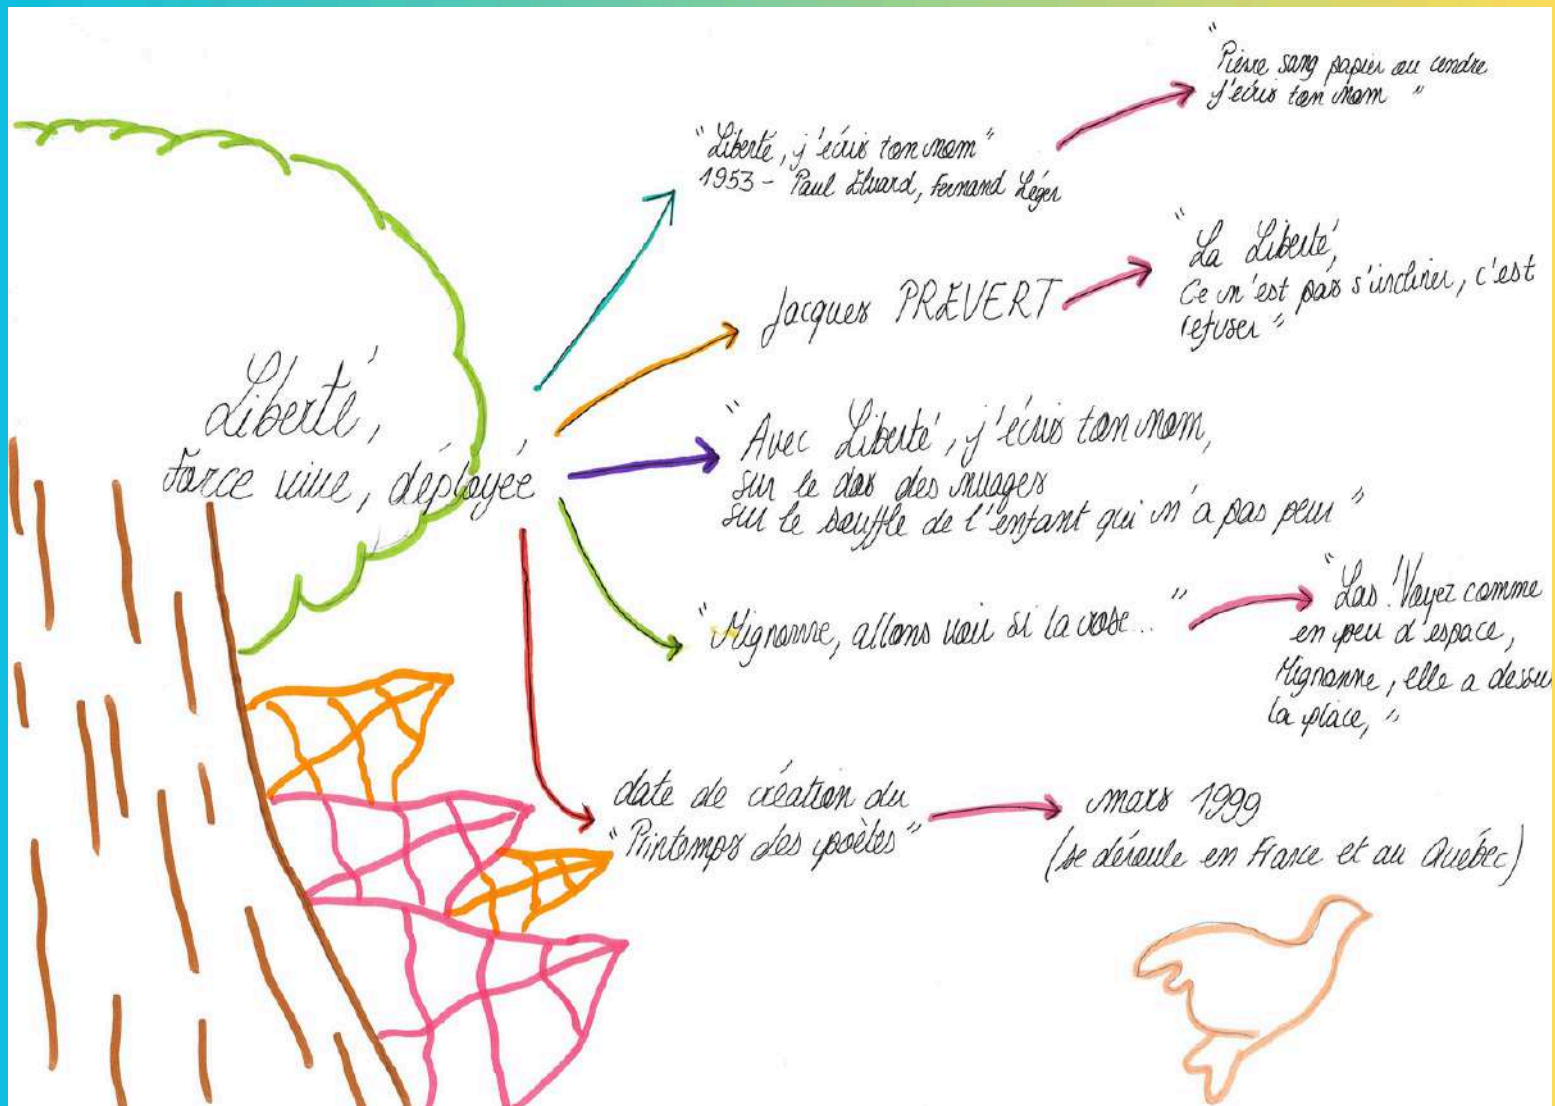 Liberté,
Force vive, déployée
"Liberté, j'écris ton nom"
1953 - Paul Eluard, Fernand Léger
"Pierre sang papier ou cendre
j'écris ton nom"
Jacques PREVERT
"La Liberté,
Ce n'est pas s'incliner, c'est
refuser"
"Avec Liberté, j'écris ton nom,
sur le dos des nuages
sur le souffle de l'enfant qui n'a pas peur"
"Mignonne, allons voir si la rose..."
"Las! Voyez comme
en peu d'espace,
Mignonne, elle a dessu
la place,"
date de création du
"Printemps des poètes"
mars 1999
(se déroule en France et au Québec)